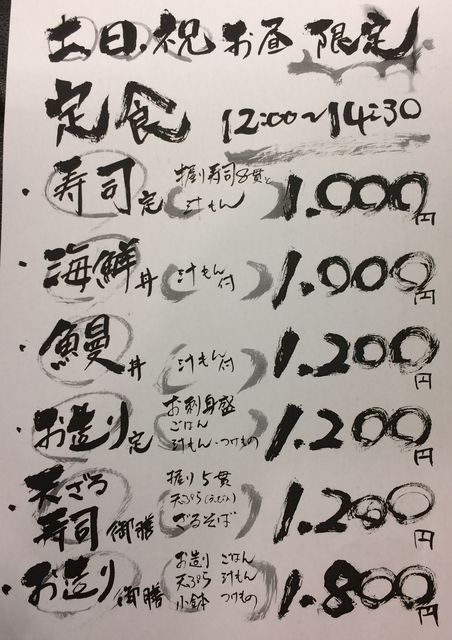 土日・祝 お昼 限定
定食 12:00〜14:30
・寿司定 握り寿司8貫と 1.000円
汁もん
・海鮮丼 汁もん付 1.000円
・鰻丼 汁もん付 1.200円
・お造り定 お刺身盛 1.200円
ごはん
汁もん・つけもの
・天ざる 握り5貫 1.200円
寿司御膳 天ぷら(えび入)
ざるそば
・お造り御膳 お造り ごはん 1.800円
天ぷら 汁もん
小鉢 つけもの